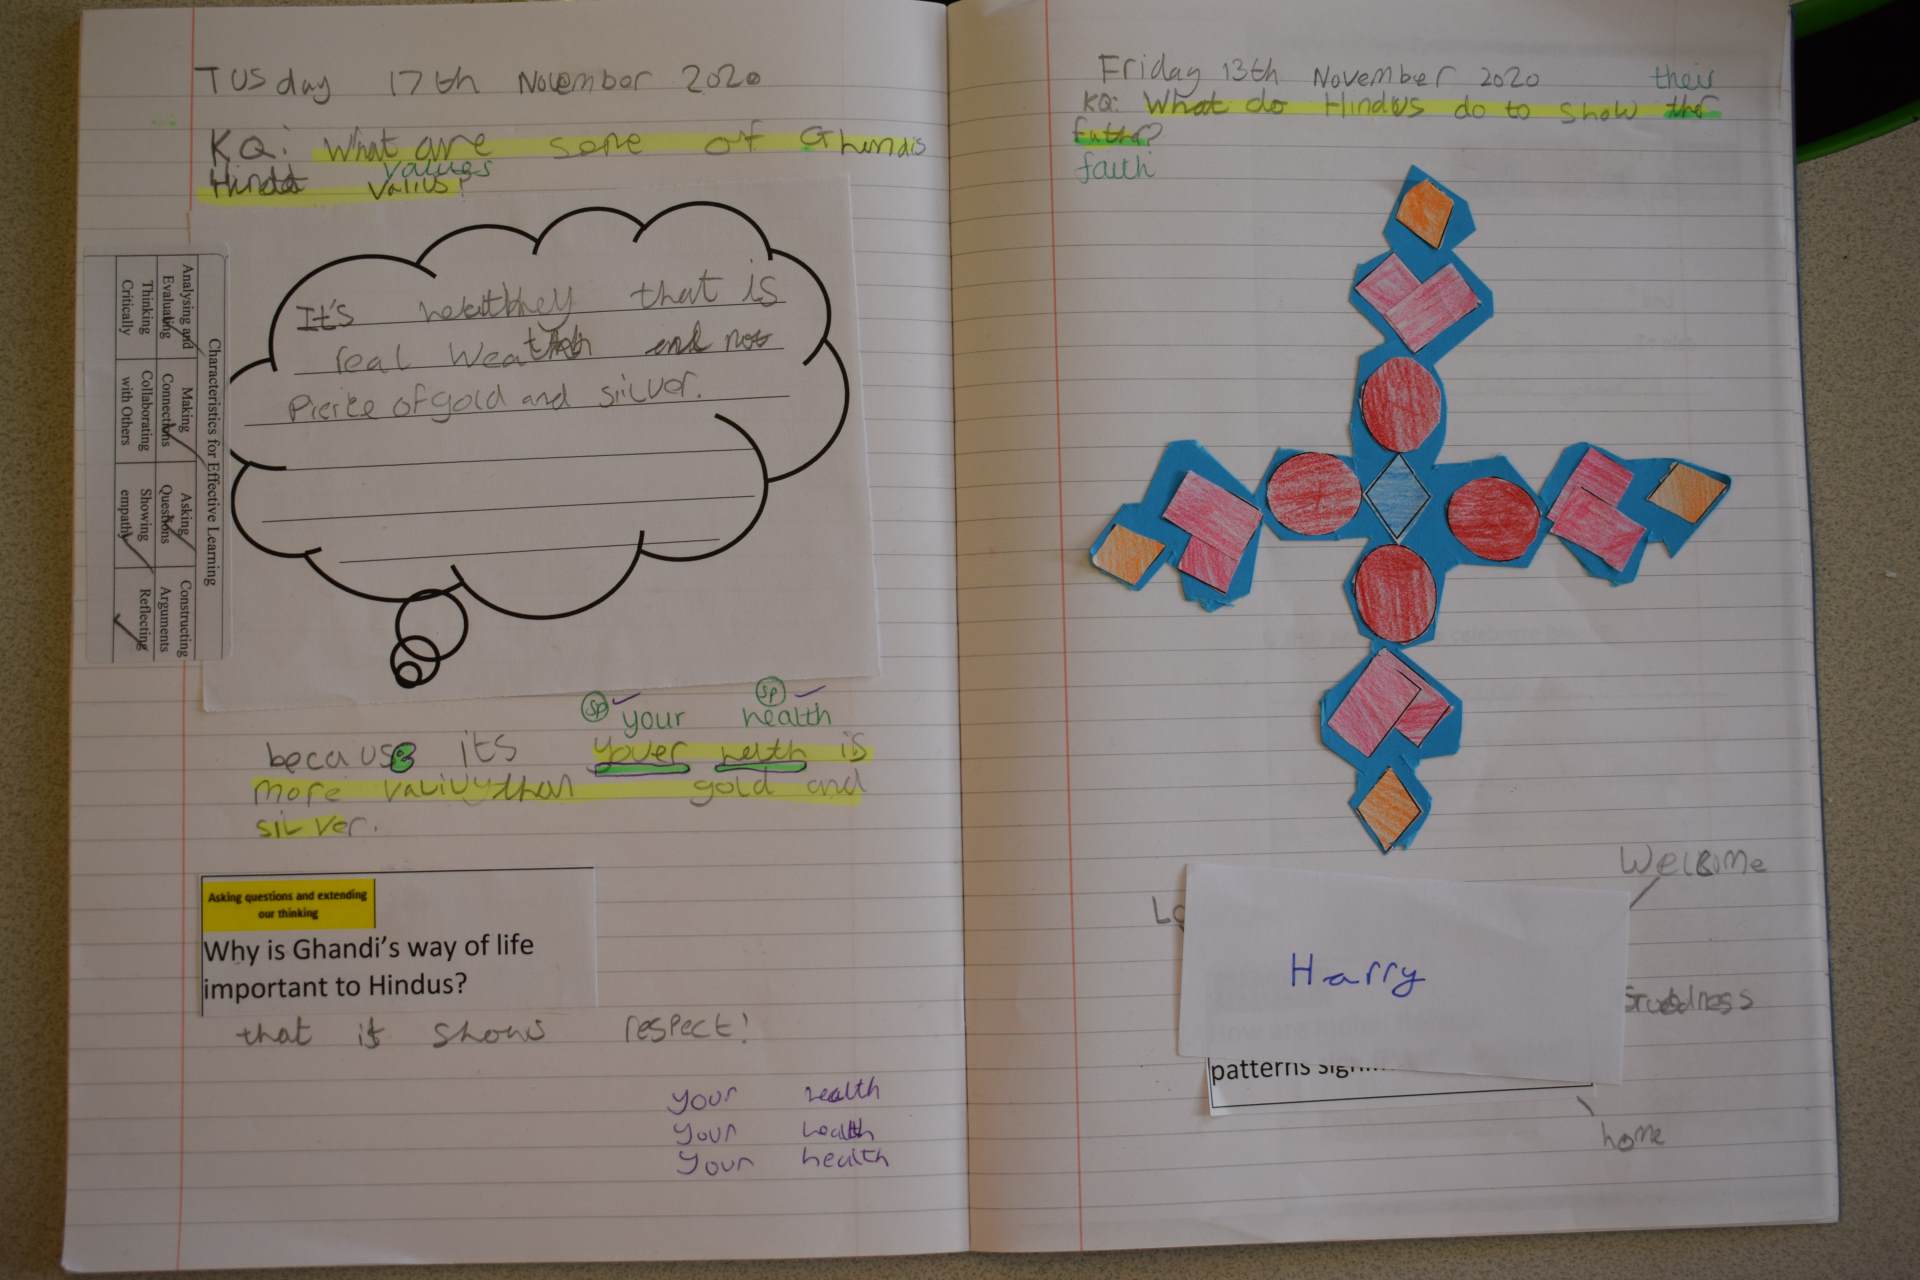 TUSday 17th November 2020
KQ: What are some of Ghandis
values
Hindu valius?
It's healthey that is
real Wealth and not
Pierce of gold and siilver.
Characteristics for Effective Learning
Analysing and Evaluating
Making Connections
Asking Questions
Constructing Arguments
Thinking Critically
Collaborating with Others
Showing empathy
Reflecting
sp your sp health
because its youer helth is
more valivy than gold and
silver.
Asking questions and extending
our thinking
Why is Ghandi's way of life
important to Hindus?
that it shows respect!
your health
your health
your health
Friday 13th November 2020
their
KQ: What do Hindus do to show ther
futher?
faith
Welcome
Harry
patterns
home